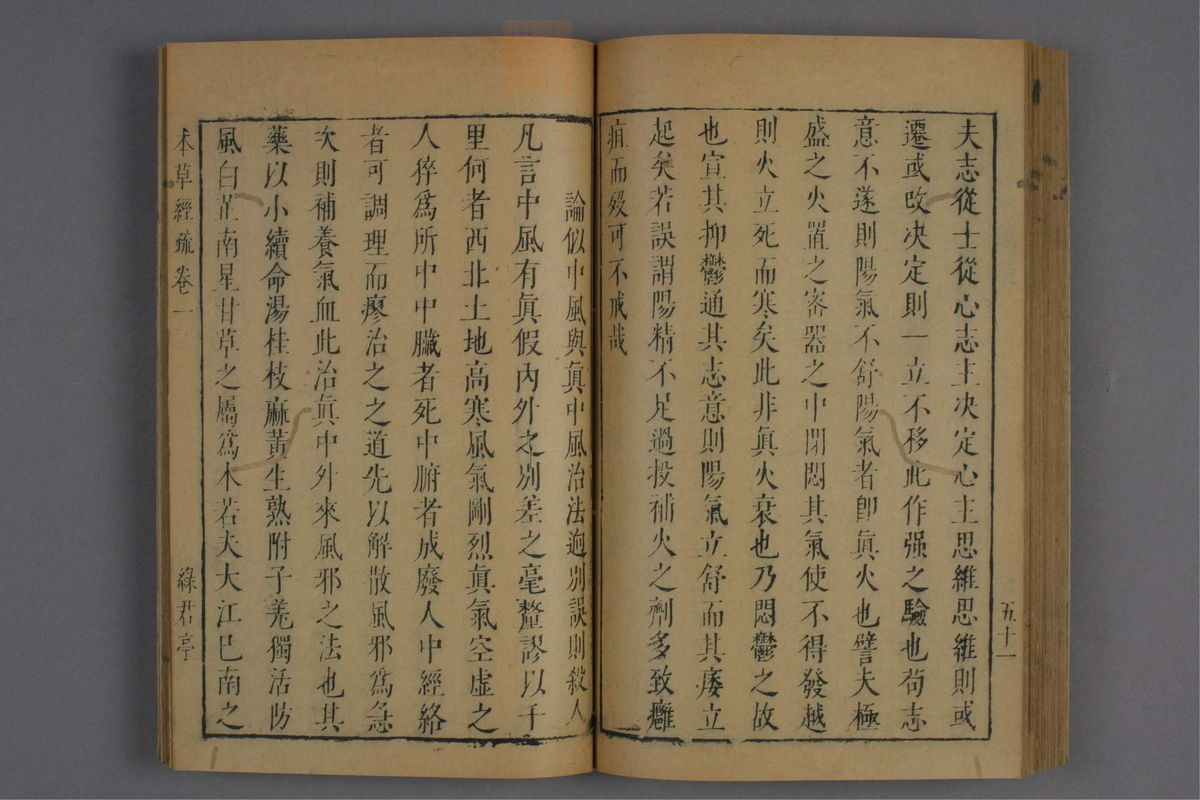 五十一
夫志從士從心志主决定心主思維思維則或
遷或改决定則一立不移此作强之驗也苟志
意不遂則陽氣不舒陽氣者卽眞火也譬夫極
盛之火置之密器之中閉悶其氣使不得發越
則火立死而寒矣此非眞火衰也乃悶鬱之故
也宣其抑鬱通其志意則陽氣立舒而其痿立
起矣若誤謂陽精不足過投補火之劑多致癰
疽而歿可不戒哉
論似中風與眞中風治法逈别誤則殺人
凡言中風有眞假内外之别差之毫釐謬以千
里何者西北土地高寒風氣剛烈眞氣空虛之
人猝爲所中中臟者死中腑者成廢人中經絡
者可調理而瘳治之之道先以解散風邪爲急
次則補養氣血此治眞中外來風邪之法也其
藥以小續命湯桂枝麻黄生熟附子羗獨活防
風白芷南星甘草之屬爲本若夫大江巳南之
本草經疏卷一
綠君亭